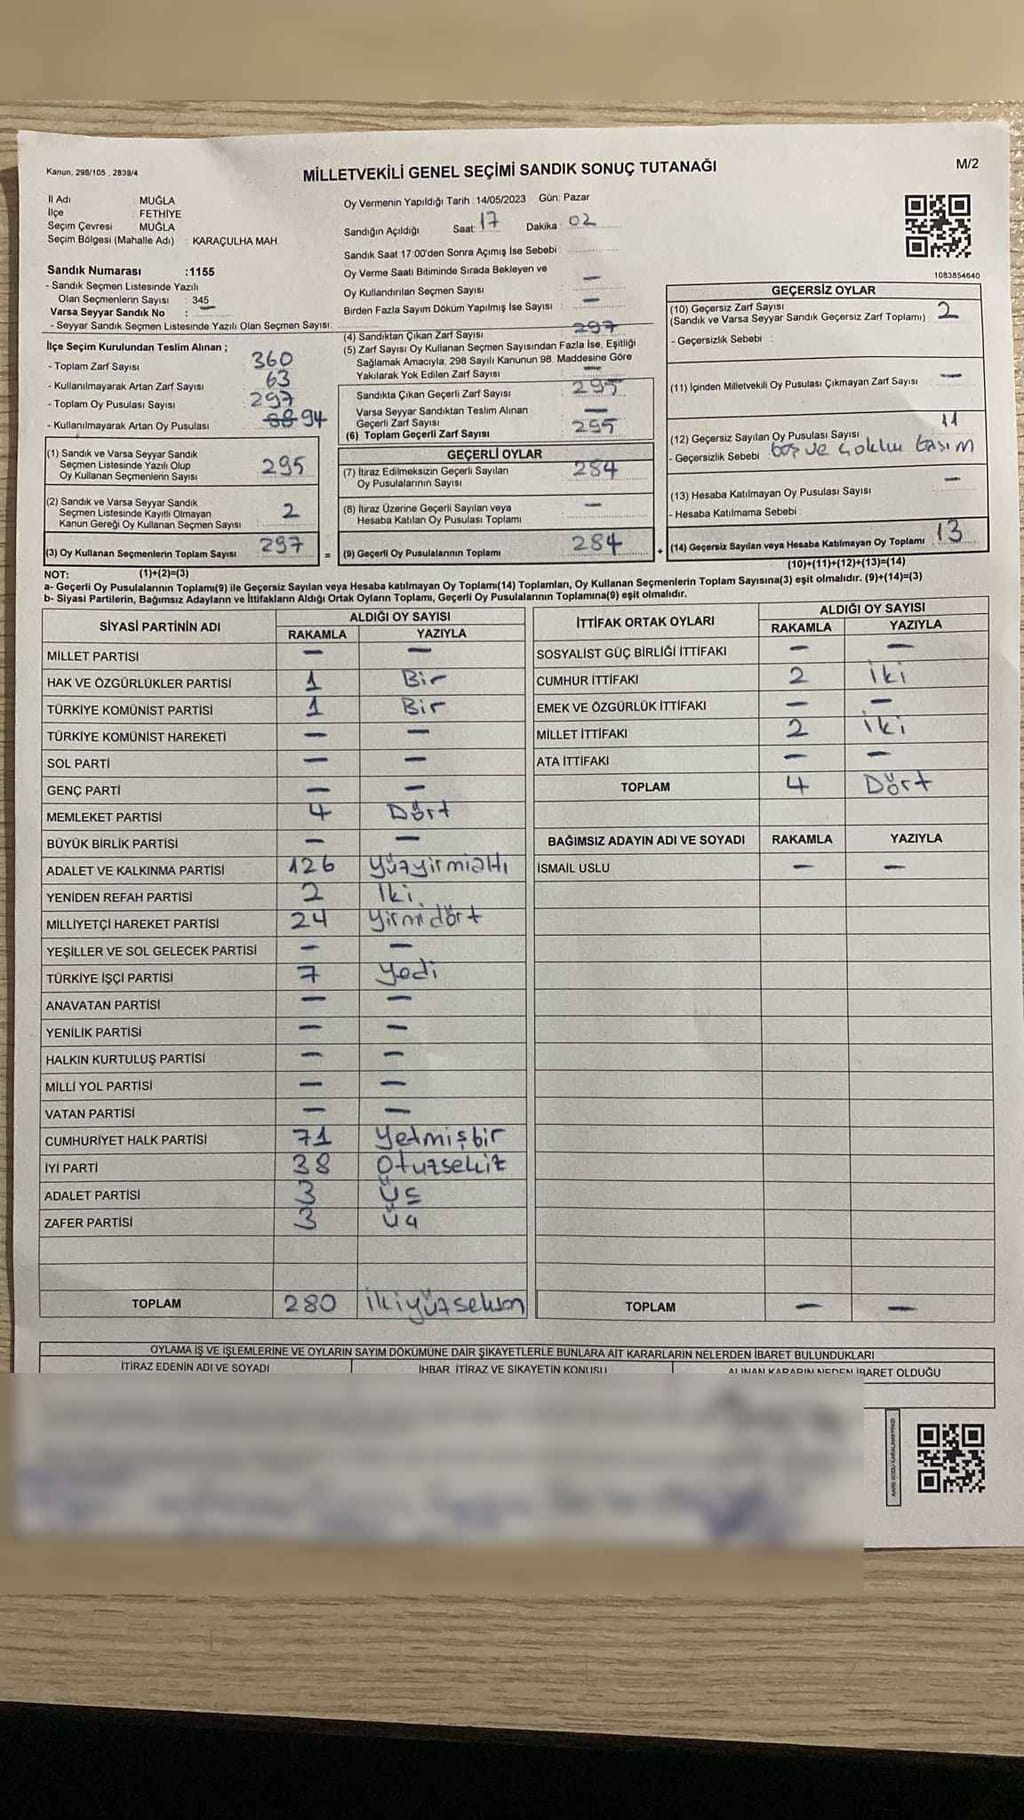 Kanun, 298/105 , 2839/4
MİLLETVEKİLİ GENEL SEÇİMİ SANDIK SONUÇ TUTANAĞI
M/2
İl Adı MUĞLA
İlçe FETHİYE
Seçim Çevresi MUĞLA
Seçim Bölgesi (Mahalle Adı) : KARAÇULHA MAH.
Oy Vermenin Yapıldığı Tarih : 14/05/2023 Gün: Pazar
Sandığın Açıldığı Saat: 17 Dakika 02
Sandık Saat 17:00'den Sonra Açılmış İse Sebebi :
Oy Verme Saati Bitiminde Sırada Bekleyen ve
Oy Kullandırılan Seçmen Sayısı : —
Birden Fazla Sayım Döküm Yapılmış İse Sayısı : —
Sandık Numarası :1155
- Sandık Seçmen Listesinde Yazılı
Olan Seçmenlerin Sayısı : 345
Varsa Seyyar Sandık No : —
- Seyyar Sandık Seçmen Listesinde Yazılı Olan Seçmen Sayısı:
İlçe Seçim Kurulundan Teslim Alınan ;
- Toplam Zarf Sayısı 360
- Kullanılmayarak Artan Zarf Sayısı : 63
- Toplam Oy Pusulası Sayısı 297
- Kullanılmayarak Artan Oy Pusulası 94
(1) Sandık ve Varsa Seyyar Sandık
Seçmen Listesinde Yazılı Olup
Oy Kullanan Seçmenlerin Sayısı 295
(2) Sandık ve Varsa Seyyar Sandık
Seçmen Listesinde Kayıtlı Olmayan
Kanun Gereği Oy Kullanan Seçmen Sayısı 2
(3) Oy Kullanan Seçmenlerin Toplam Sayısı 297
(4) Sandıktan Çıkan Zarf Sayısı 297
(5) Zarf Sayısı Oy Kullanan Seçmen Sayısından Fazla İse, Eşitliği
Sağlamak Amacıyla, 298 Sayılı Kanunun 98. Maddesine Göre
Yakılarak Yok Edilen Zarf Sayısı —
Sandıkta Çıkan Geçerli Zarf Sayısı 295
Varsa Seyyar Sandıktan Teslim Alınan
Geçerli Zarf Sayısı —
(6) Toplam Geçerli Zarf Sayısı 295
GEÇERLİ OYLAR
(7) İtiraz Edilmeksizin Geçerli Sayılan
Oy Pusulalarının Sayısı 284
(8) İtiraz Üzerine Geçerli Sayılan veya
Hesaba Katılan Oy Pusulası Toplamı —
= (9) Geçerli Oy Pusulalarının Toplamı 284
1083854640
GEÇERSİZ OYLAR
(10) Geçersiz Zarf Sayısı
(Sandık ve Varsa Seyyar Sandık Geçersiz Zarf Toplamı) 2
- Geçersizlik Sebebi :
(11) İçinden Milletvekili Oy Pusulası Çıkmayan Zarf Sayısı —
(12) Geçersiz Sayılan Oy Pusulası Sayısı 11
- Geçersizlik Sebebi boş ve çoklu basım
(13) Hesaba Katılmayan Oy Pusulası Sayısı —
- Hesaba Katılmama Sebebi
+ (14) Geçersiz Sayılan veya Hesaba Katılmayan Oy Toplamı 13
NOT: (1)+(2)=(3) (10)+(11)+(12)+(13)=(14)
a- Geçerli Oy Pusulalarının Toplamı(9) ile Geçersiz Sayılan veya Hesaba katılmayan Oy Toplamı(14) Toplamları, Oy Kullanan Seçmenlerin Toplam Sayısına(3) eşit olmalıdır. (9)+(14)=(3)
b- Siyasi Partilerin, Bağımsız Adayların ve İttifakların Aldığı Ortak Oyların Toplamı, Geçerli Oy Pusulalarının Toplamına(9) eşit olmalıdır.
SİYASİ PARTİNİN ADI ALDIĞI OY SAYISI
RAKAMLA YAZIYLA
MİLLET PARTİSİ — —
HAK VE ÖZGÜRLÜKLER PARTİSİ 1 Bir
TÜRKİYE KOMÜNİST PARTİSİ 1 Bir
TÜRKİYE KOMÜNİST HAREKETİ — —
SOL PARTİ — —
GENÇ PARTİ — —
MEMLEKET PARTİSİ 4 Dört
BÜYÜK BİRLİK PARTİSİ — —
ADALET VE KALKINMA PARTİSİ 126 yüzyirmialtı
YENİDEN REFAH PARTİSİ 2 İki
MİLLİYETÇİ HAREKET PARTİSİ 24 yirmidört
YEŞİLLER VE SOL GELECEK PARTİSİ — —
TÜRKİYE İŞÇİ PARTİSİ 7 yedi
ANAVATAN PARTİSİ — —
YENİLİK PARTİSİ — —
HALKIN KURTULUŞ PARTİSİ — —
MİLLİ YOL PARTİSİ — —
VATAN PARTİSİ — —
CUMHURİYET HALK PARTİSİ 71 yetmişbir
İYİ PARTİ 38 Otuzsekiz
ADALET PARTİSİ 3 Üç
ZAFER PARTİSİ 3 Üç
TOPLAM 280 ikiyüzseksen
İTTİFAK ORTAK OYLARI ALDIĞI OY SAYISI
RAKAMLA YAZIYLA
SOSYALİST GÜÇ BİRLİĞİ İTTİFAKI — —
CUMHUR İTTİFAKI 2 iki
EMEK VE ÖZGÜRLÜK İTTİFAKI — —
MİLLET İTTİFAKI 2 iki
ATA İTTİFAKI — —
TOPLAM 4 Dört
BAĞIMSIZ ADAYIN ADI VE SOYADI RAKAMLA YAZIYLA
İSMAİL USLU — —
TOPLAM — —
OYLAMA İŞ VE İŞLEMLERİNE VE OYLARIN SAYIM DÖKÜMÜNE DAİR ŞİKAYETLERLE BUNLARA AİT KARARLARIN NELERDEN İBARET BULUNDUKLARI
İTİRAZ EDENİN ADI VE SOYADI İHBAR, İTİRAZ VE ŞİKAYETİN KONUSU ALINAN KARARIN NEDEN İBARET OLDUĞU